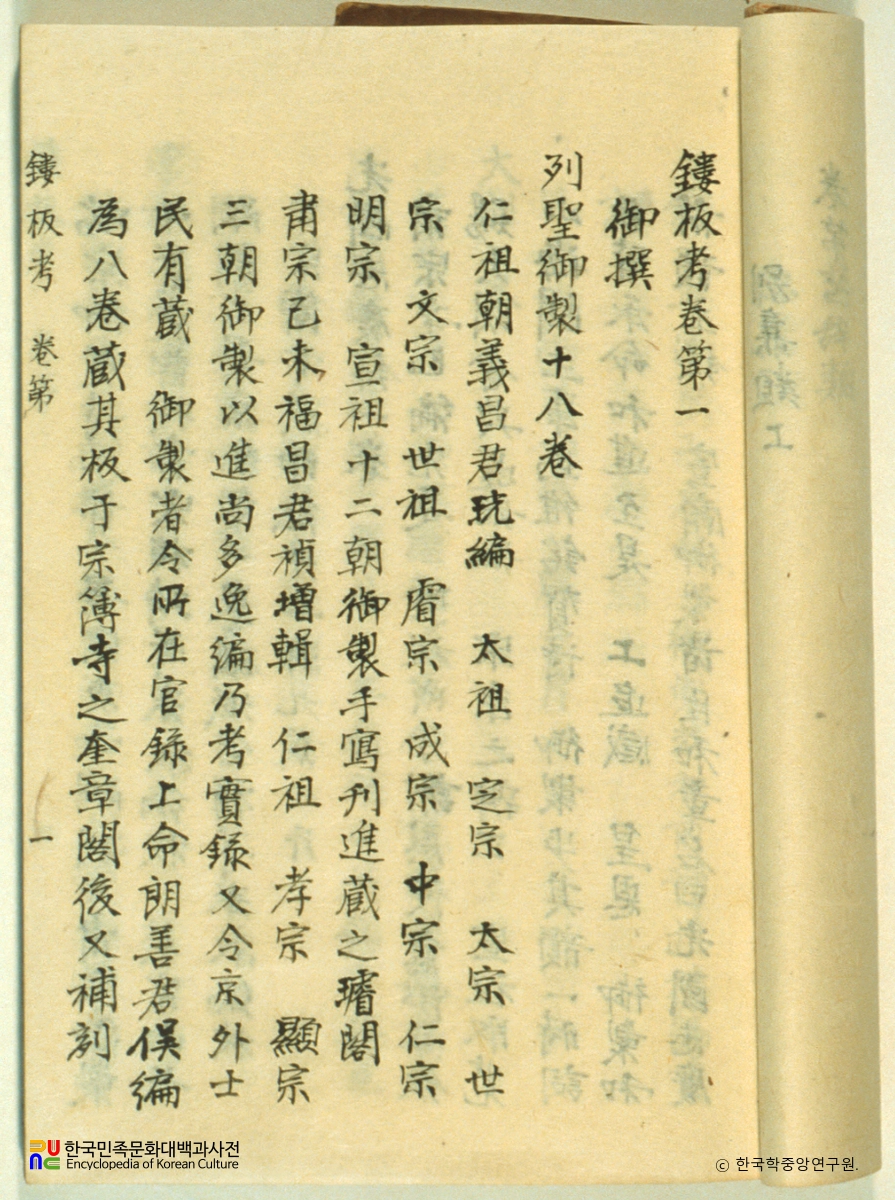 鏤板考卷第一
御撰
列聖御製十八卷
仁祖朝義昌君珖編 太祖 定宗 太宗 世
宗 文宗 世祖 睿宗 成宗 中宗 仁宗
明宗 宣祖十二朝御製手寫刊進蔵之璿閣
肅宗己未福昌君禎增輯 仁祖 孝宗 顯宗
三朝御製以進尚多逸編乃考實錄又令京外士
民有蔵 御製者令所在官録上命朗善君俁編
為八卷蔵其板于宗簿寺之奎章閣後又補刻
鏤板考 卷第 一
한국민족문화대백과사전
Encyclopedia of Korean Culture
© 한국학중앙연구원.